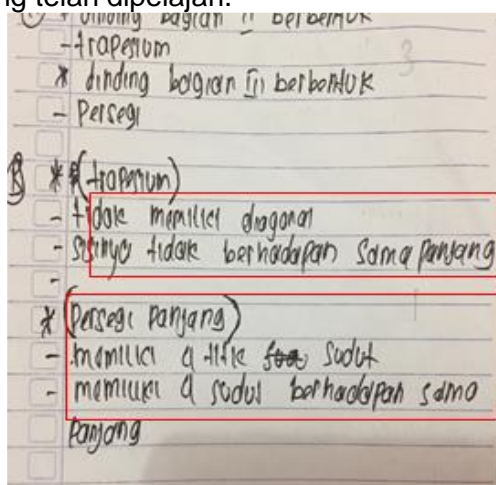 ng telah dipelajari.
* dinding bagian II berbentuk
- trapesium
* dinding bagian III berbentuk
- Persegi
B * (trapesium)
- tidak memiliki diagonal
- sisinya tidak berhadapan sama panjang
-
* (Persegi Panjang)
- memiliki 4 titik sudut
- memiliki 4 sudut berhadapan sama
panjang